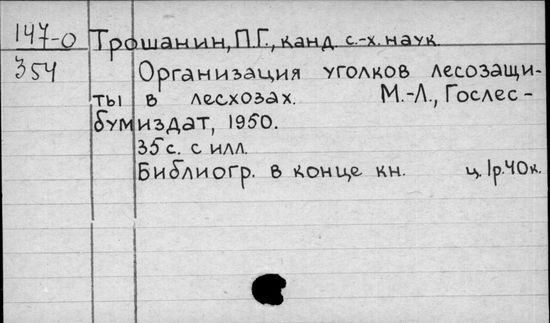 147-0 Трошанин, П.Г., канд. с.-х. наук.
354 Организация уголков лесозащи-
ты в лесхозах. М.-Л., Гослес-
бумиздат, 1950.
35 с. с илл.
Библиогр. в конце кн. ц. 1р.40к.